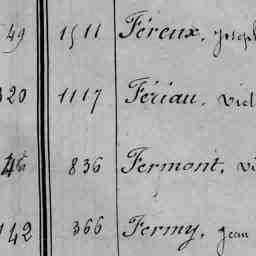 49 1511 Féreux, Joseph
320 1117 Fériau, vict
46 836 Fermont, vi
142 366 Fermy, jean